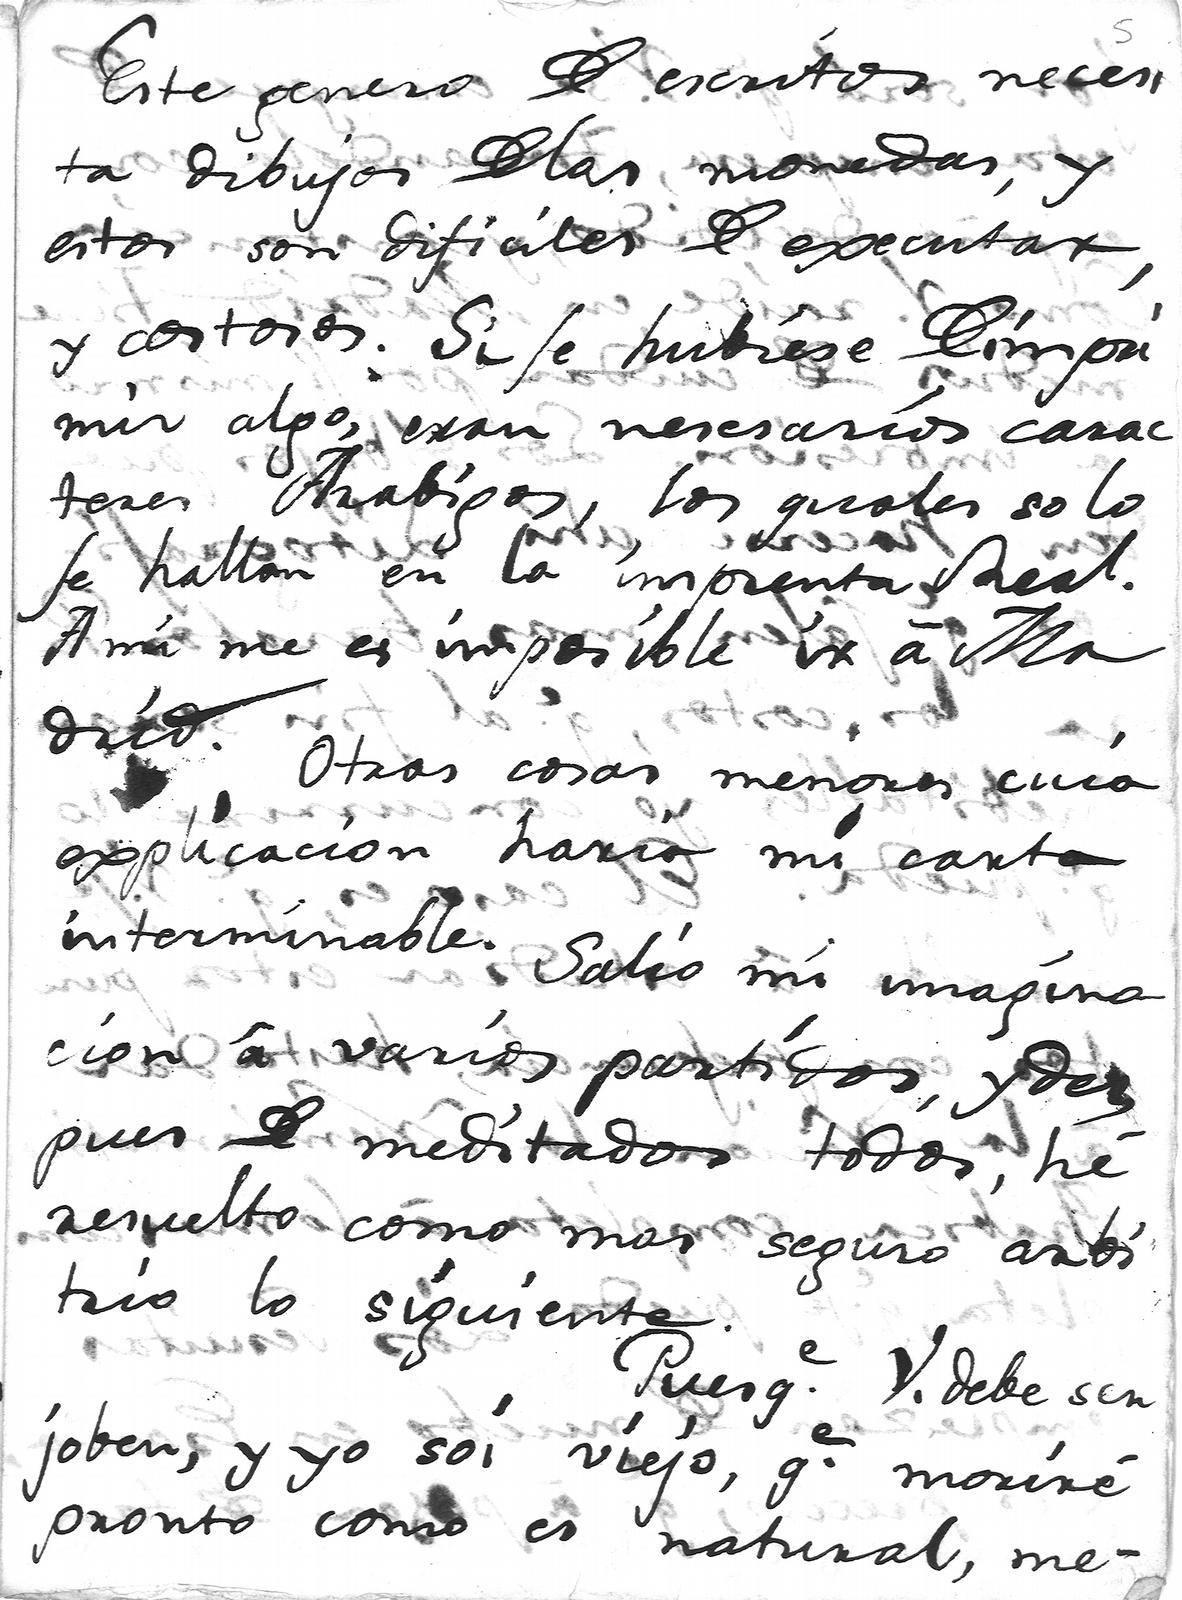 5
Este genero D escritos necesi
ta dibujos Dlas monedas, y
estos son dificiles D executar,
y costosos. Si se hubiese Dimpri
mir algo, eran nesesarios carac
teres Arabigos, los quales solo
se hallan en la imprenta Real.
A mi me es imposible ir â Ma
drid.
Otras cosas menores cuia
explicacion haria mi carta
interminable.
Salio mi imagina
cion â varios partidos, y des,
pues D meditados todos, hé
resuelto como mas seguro arbi
trio lo siguiente.
Pues q.e V. debe ser
joben, y yo soi viejo, q.e moriré
pronto como es natural, me-